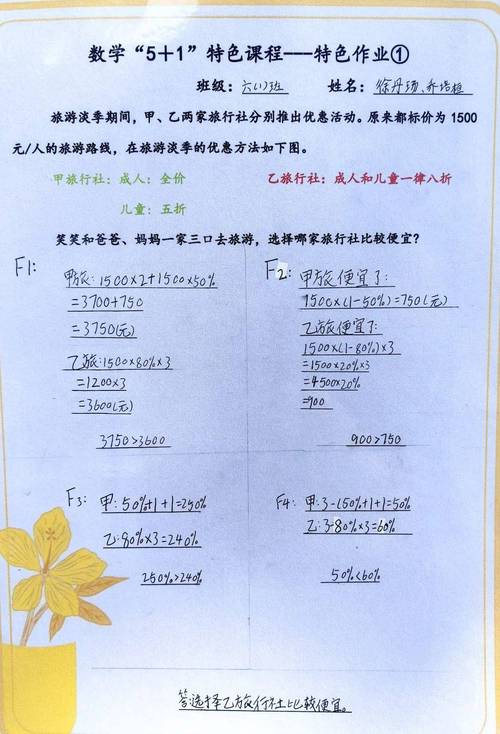 数学“5+1”特色课程---特色作业①
班级：六(1)班 姓名：徐丹
旅游淡季期间，甲、乙两家旅行社分别推出优惠活动。原来都标价为 1500
元/人的旅游路线，在旅游淡季的优惠方法如下图。
甲旅行社：成人：全价 乙旅行社：成人和儿童一律八折
儿童：五折
笑笑和爸爸、妈妈一家三口去旅游，选择哪家旅行社比较便宜？
F1:
甲旅:1500×2+1500×50%
=3700+750
=3750(元)
乙旅:1500×80%×3
=1200×3
=3600(元)
3750>3600
F2:
甲旅便宜了:
1500×(1-50%)=750(元)
乙旅便宜了:
1500×(1-80%)×3
=1500×20%×3
=4500×20%
=900
900>750
F3:
甲:50%+1+1=250%
乙:80%×3=240%
250%>240%
F4:
甲:3-(50%+1+1=50%
乙:3-80%×3=60%
50%<60%
答:选择乙旅行社比较便宜。